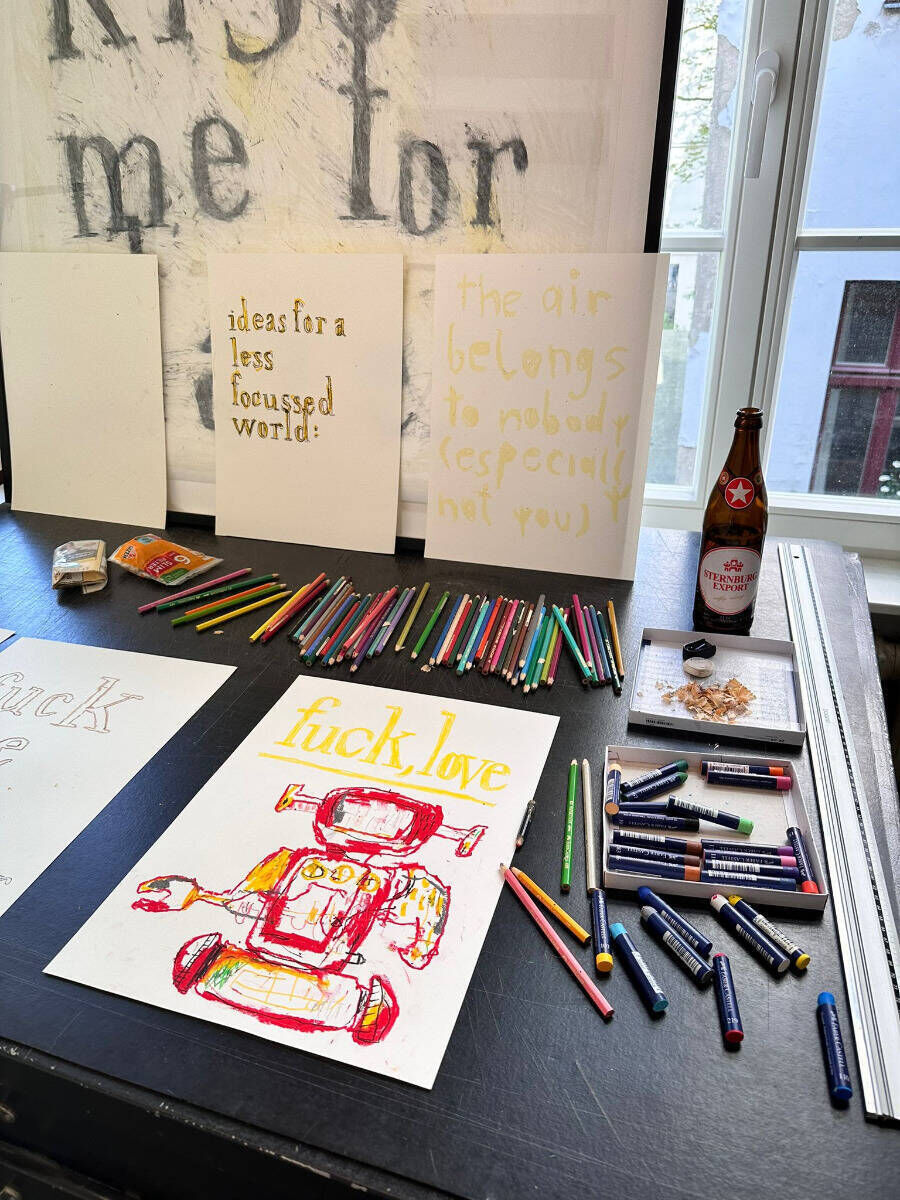 me for
ideas for a
less
focussed
world:
the air
belongs
to nobody
(especiall
y
not you)
STERNBURG
EXPORT
SLIM
fuck
fuck, love
FABER-CASTELL